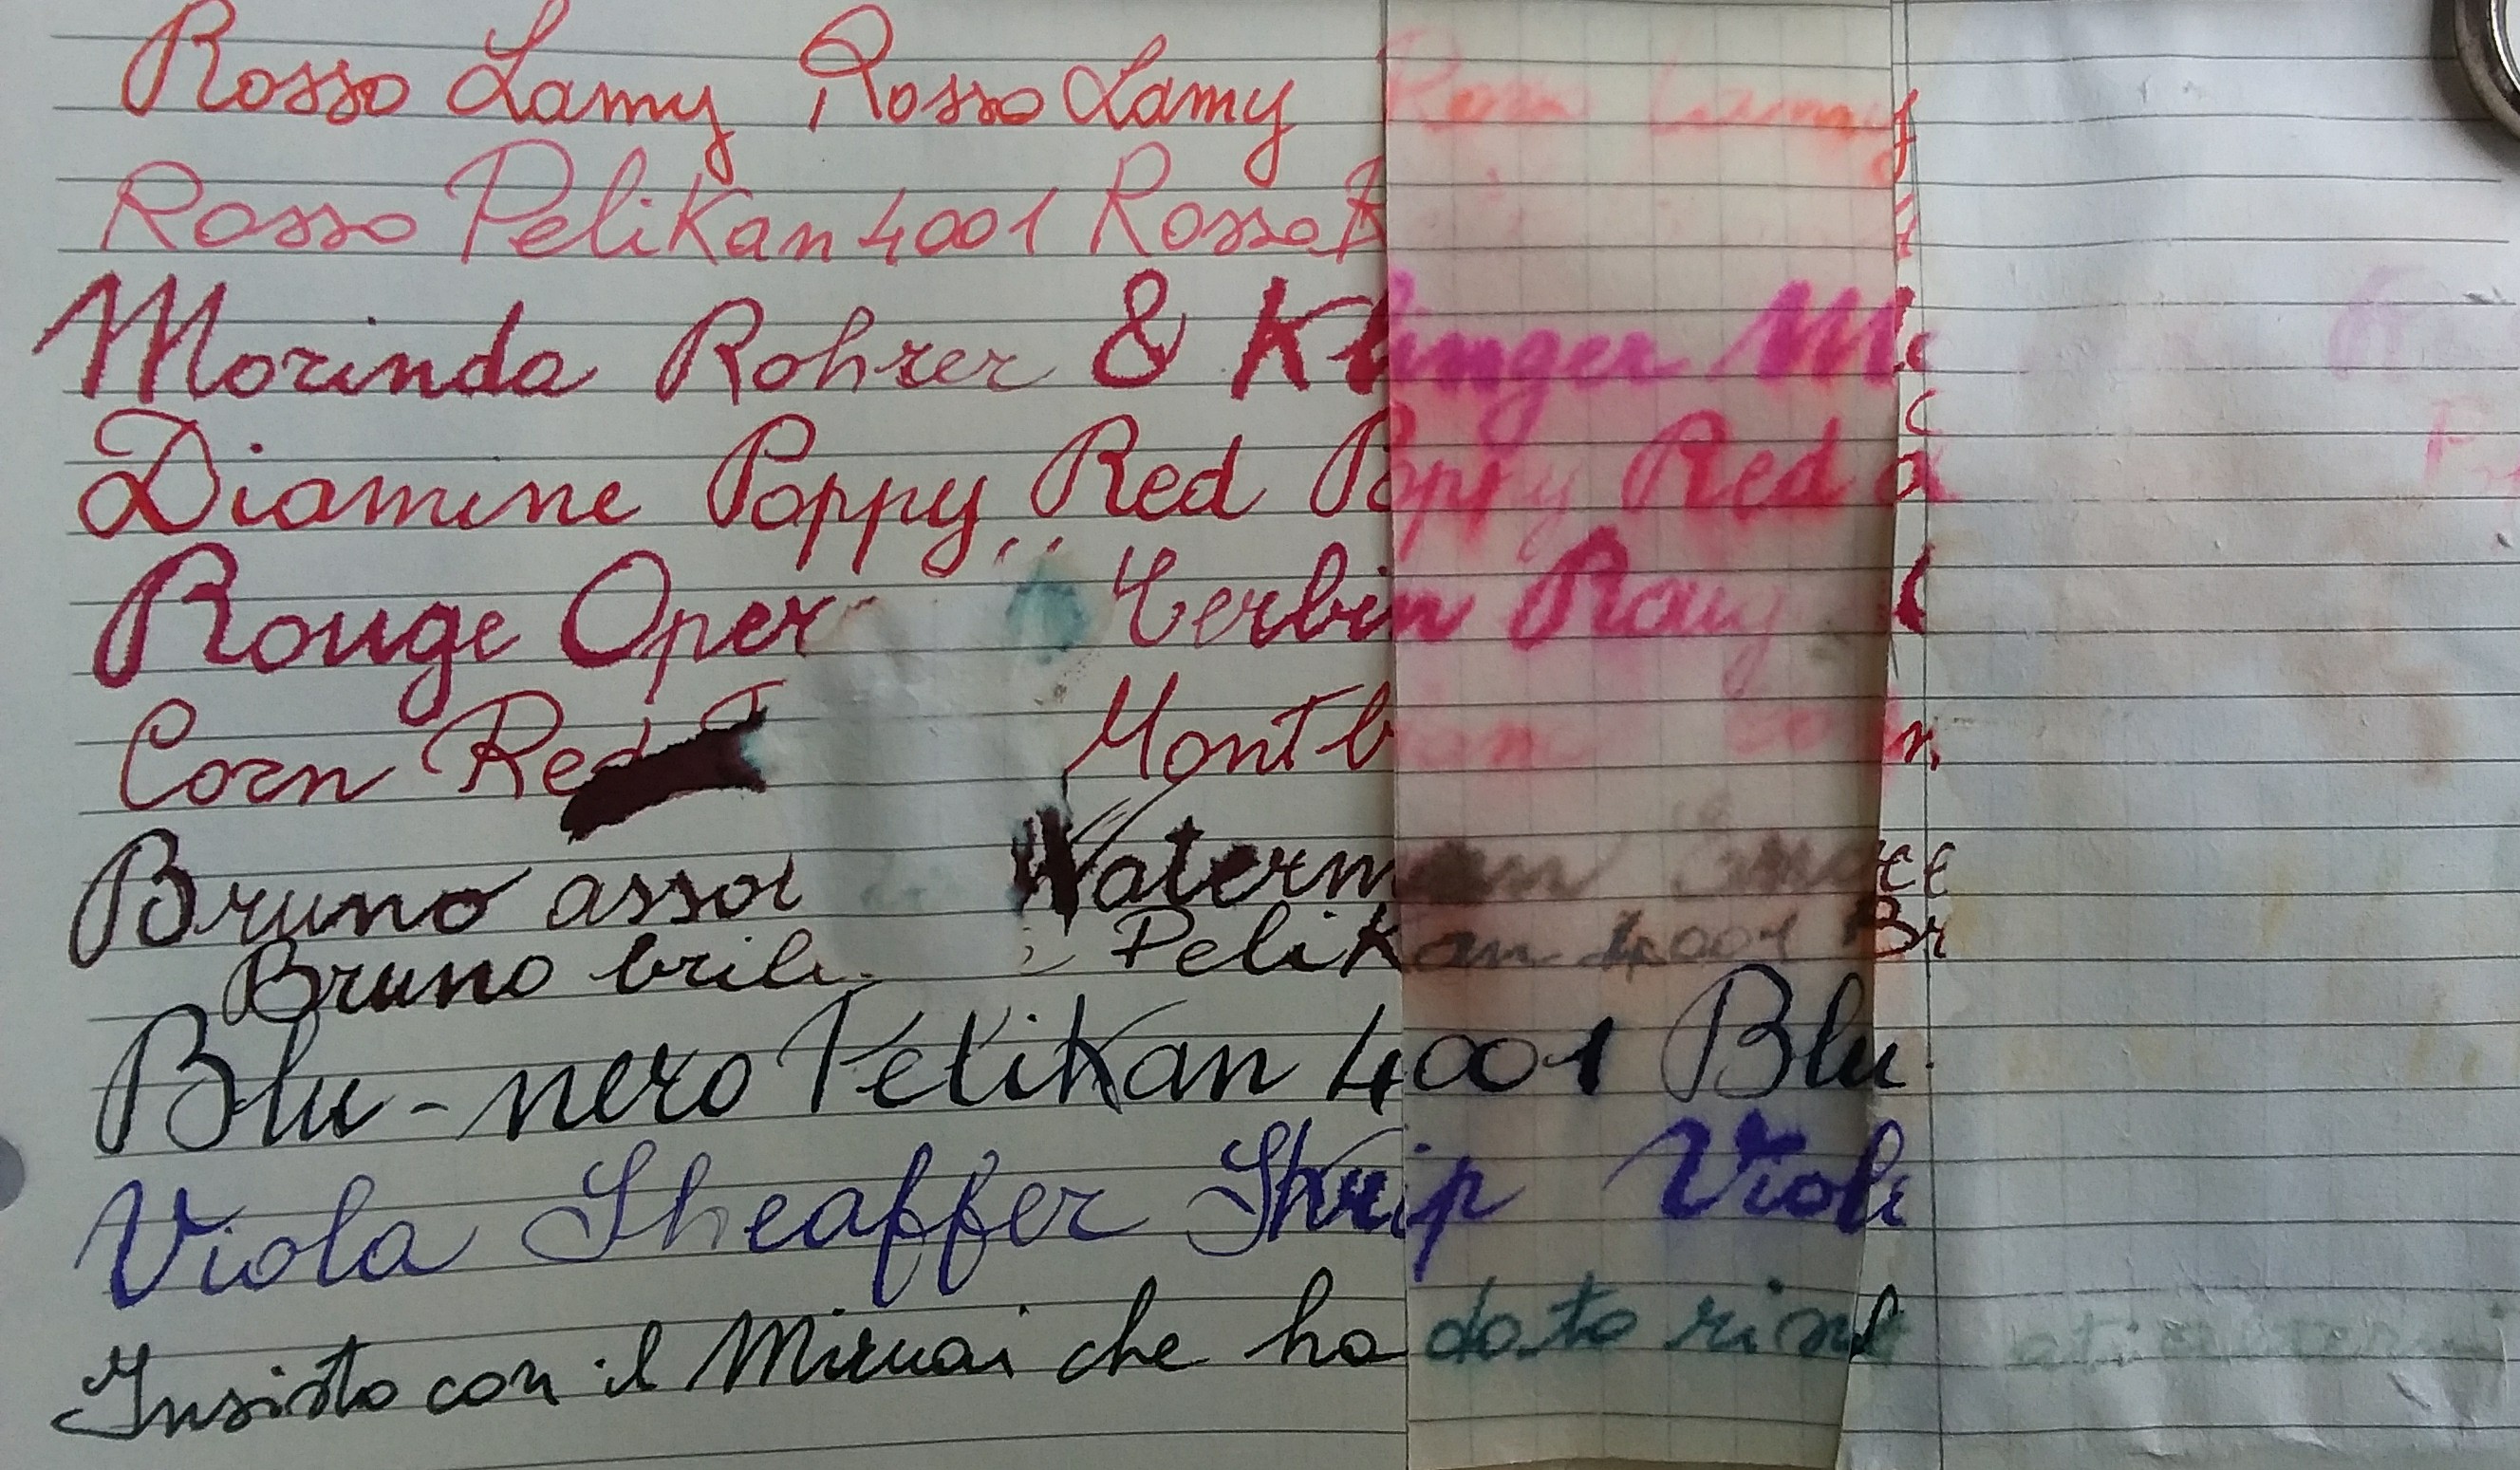 Rosso Lamy Rosso Lamy Rosso Lamy
Rosso Pelikan 4001 Rosso
Morinda Rohrer & Klinger Mo
Diamine Poppy Red Poppy Red
Rouge Oper Herbin Roug
Corn Red Montb
Bruno assol Waterman
Bruno brill Pelikan 4001 Br
Blu-nero Pelikan 4001 Blu
Viola Sheaffer Skrip Viol
Insisto con il Miruai che ha dato risul